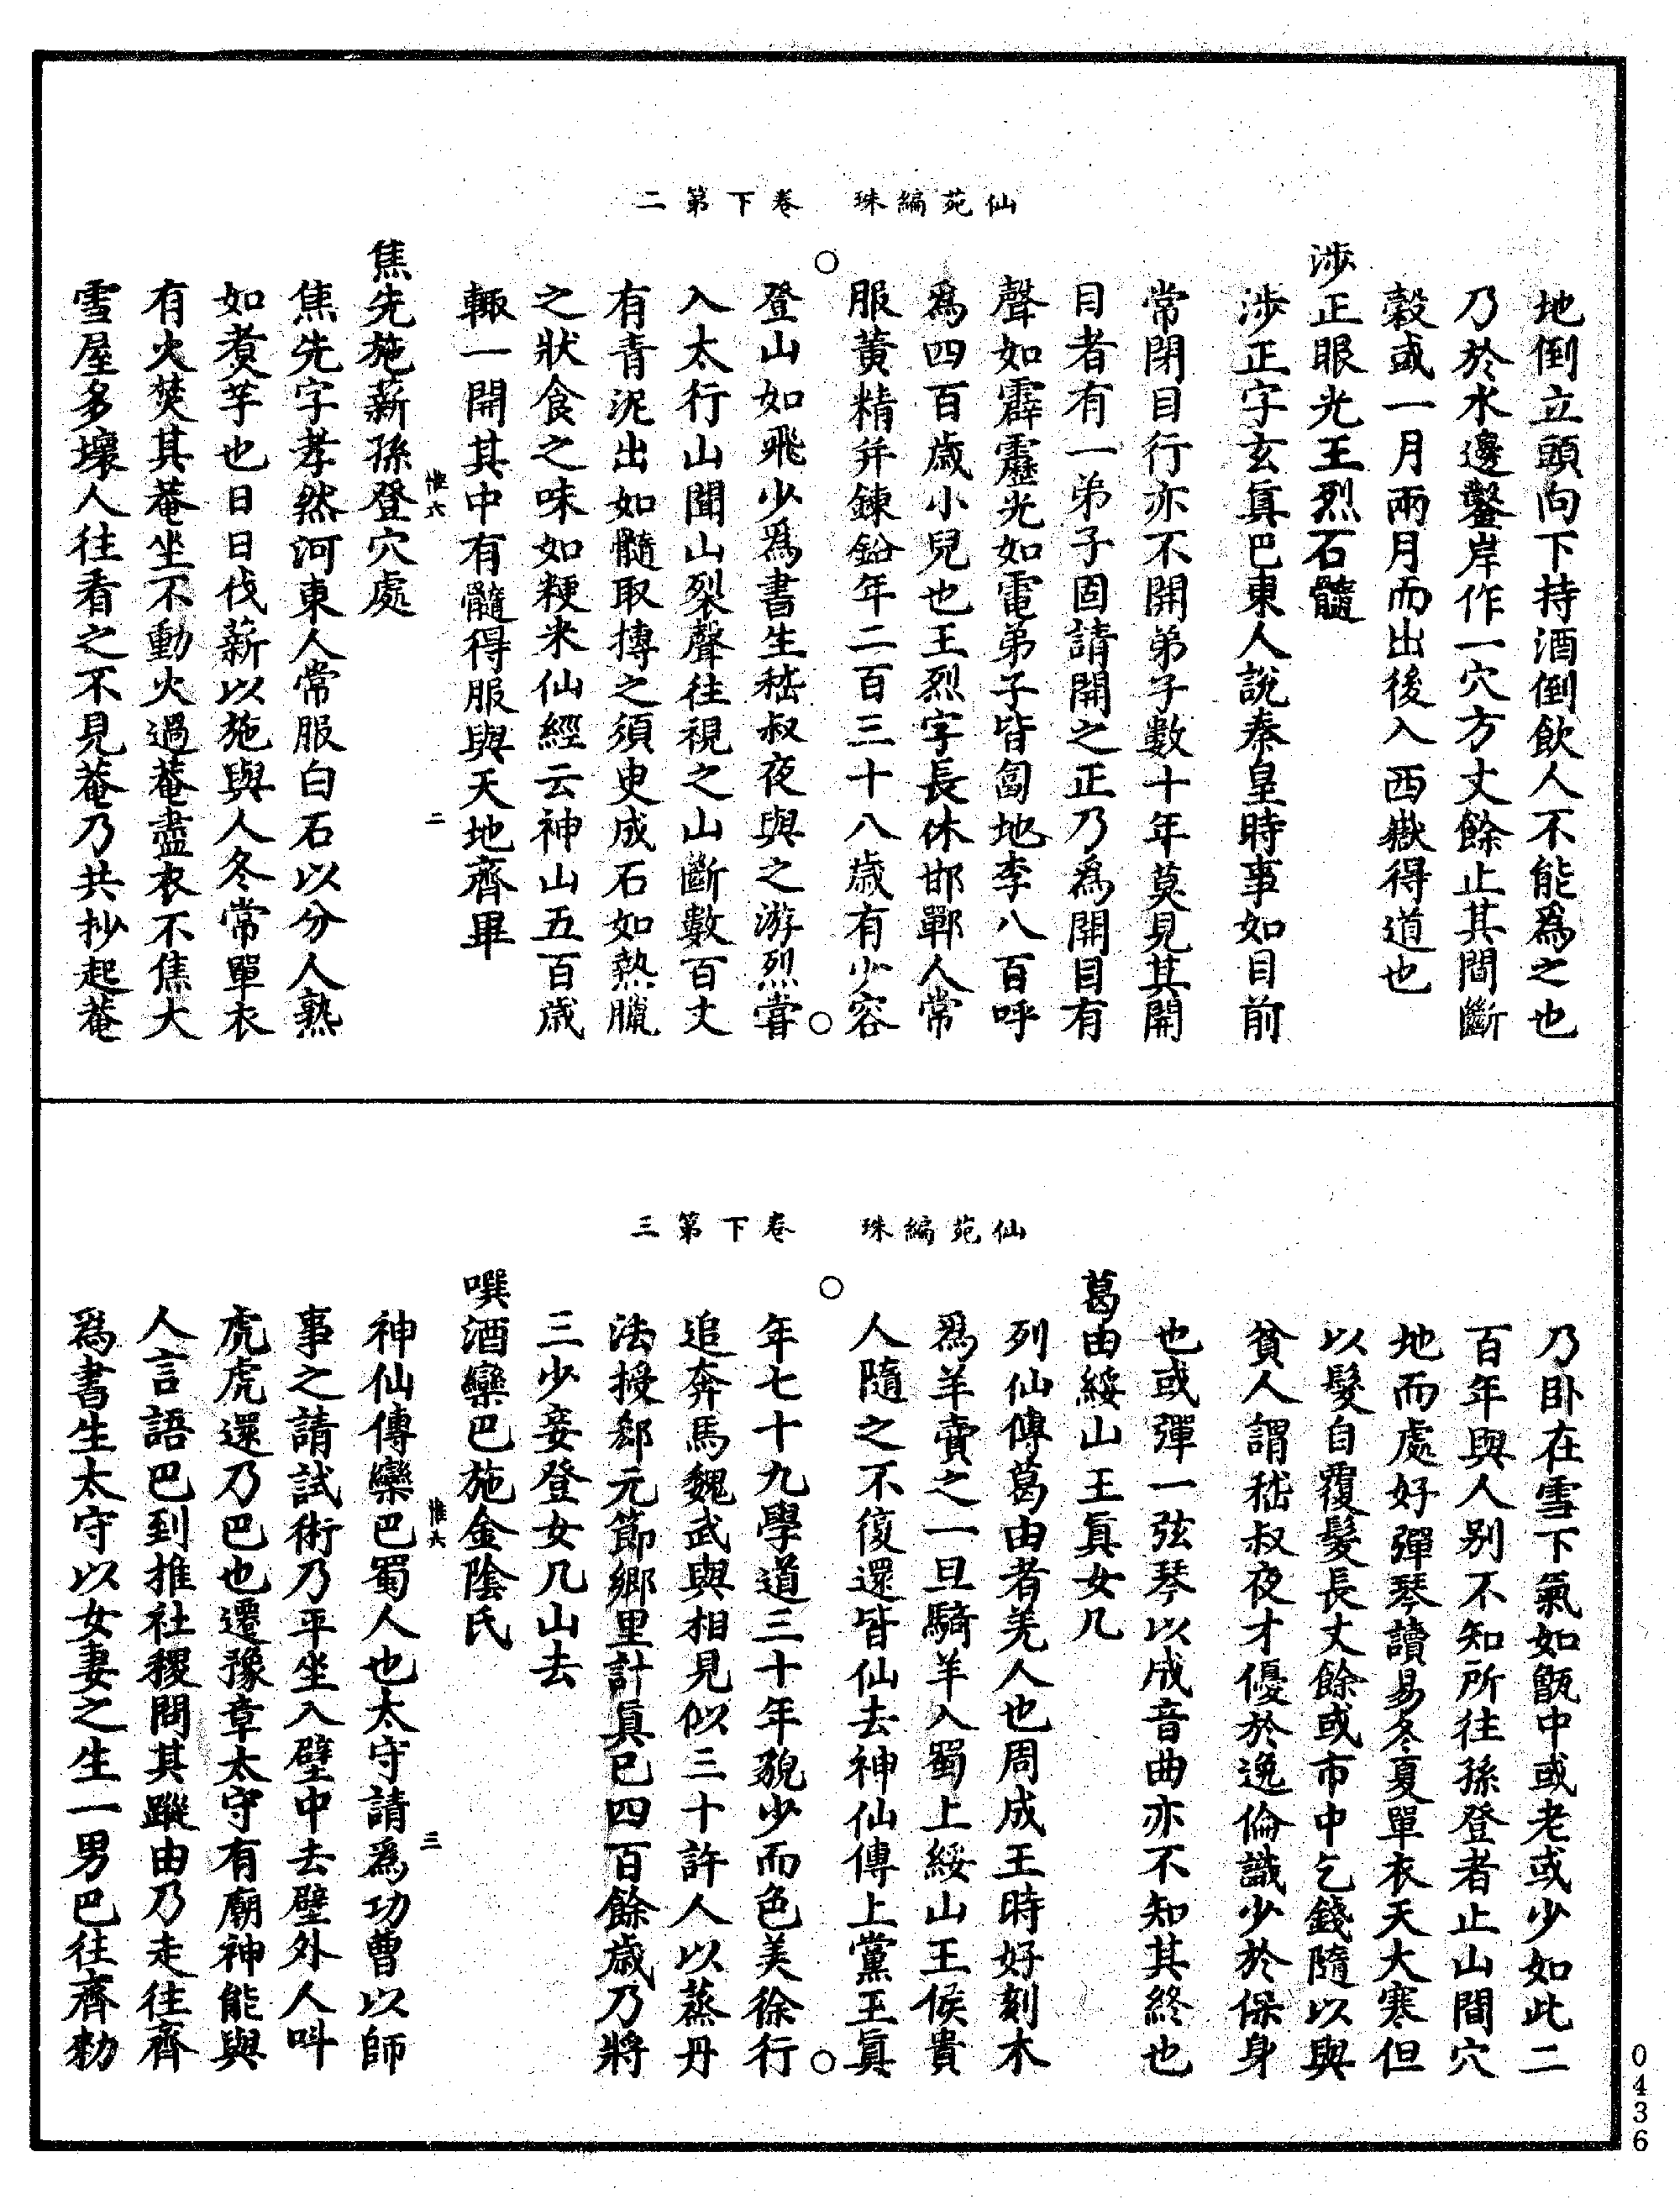 仙苑編珠　卷下第二
地倒立頭向下持酒倒飲人不能爲之也
乃於水邊鑿岸作一穴方丈餘止其間斷
穀或一月兩月而出後入西嶽得道也
涉正眼光王烈石髓
涉正字玄眞巴東人說秦皇時事如目前
常閉目行亦不開弟子數十年莫見其開
目者有一弟子固請開之正乃爲開目有
聲如霹靂光如電弟子皆匐地李八百呼
爲四百歲小兒也王烈字長休邯鄲人常
服黃精幷鍊鉛年二百三十八歲有少容
登山如飛少爲書生嵇叔夜與之游烈嘗
入太行山聞山裂聲往視之山斷數百丈
有青泥出如髓取摶之須臾成石如熱臘
之狀食之味如粳米仙經云神山五百歲
輒一開其中有髓得服與天地齊畢
惟六　二
焦先施薪孫登穴處
焦先字孝然河東人常服白石以分人熟
如煮芋也日日伐薪以施與人冬常單衣
有火焚其菴坐不動火過菴盡衣不焦大
雪屋多壞人往看之不見菴乃共抄起菴
仙苑編珠　卷下第三
乃臥在雪下氣如甑中或老或少如此二
百年與人別不知所往孫登者止山間穴
地而處好彈琴讀易冬夏單衣天大寒但
以髮自覆髮長丈餘或市中乞錢隨以與
貧人謂嵇叔夜才優於逸倫識少於保身
也或彈一弦琴以成音曲亦不知其終也
葛由綏山王眞女几
列仙傳葛由者羌人也周成王時好刻木
爲羊賣之一旦騎羊入蜀上綏山王侯貴
人隨之不復還皆仙去神仙傳上黨王眞
年七十九學道三十年貌少而色美徐行
追奔馬魏武與相見似三十許人以蒸丹
法授郄元節鄉里計眞已四百餘歲乃將
三少妾登女几山去
噀酒欒巴施金陰氏
惟六　三
神仙傳欒巴蜀人也太守請爲功曹以師
事之請試術乃平坐入壁中去壁外人叫
虎虎還乃巴也遷豫章太守有廟神能與
人言語巴到推社稷問其蹤由乃走往齊
爲書生太守以女妻之生一男巴往齊勑
0436